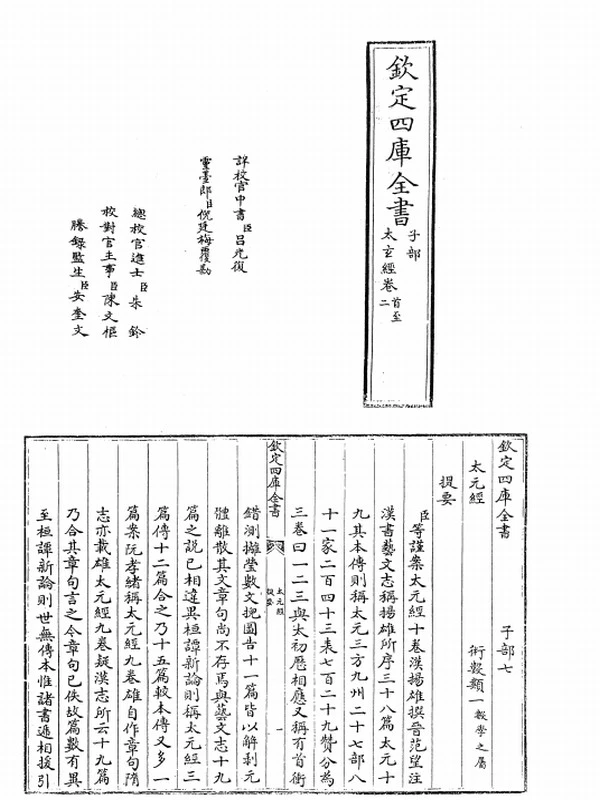 欽定四庫全書
子部
太玄經卷首至二
詳校官中書臣呂光復
靈臺郎臣倪廷梅覆勘
總校官進士臣朱鈐
校對官主事臣陳文樞
謄錄監生臣安奎文
欽定四庫全書 子部七
太元經 術數類一數學之屬
提要
臣等謹案太元經十卷漢揚雄撰晉范望注
漢書藝文志稱揚雄所序三十八篇太元十
九其本傳則稱太元三方九州二十七部八
十一家二百四十三表七百二十九贊分為
三卷曰一二三與太初歷相應又稱有首衝
錯測攡瑩數文掜圖告十一篇皆以解剥元
體離散其文章句尚不存焉與藝文志十九
篇之說已相違異桓譚新論則稱太元經三
篇傳十二篇合之乃十五篇較本傳又多一
篇案阮孝緒稱太元經九卷雄自作章句隋
志亦載雄太元經九卷疑漢志所云十九篇
乃合其章句言之今章句已佚故篇數有異
至桓譚新論則世無傳本惟諸書遞相援引
欽定四庫全書
太元經
提要
一